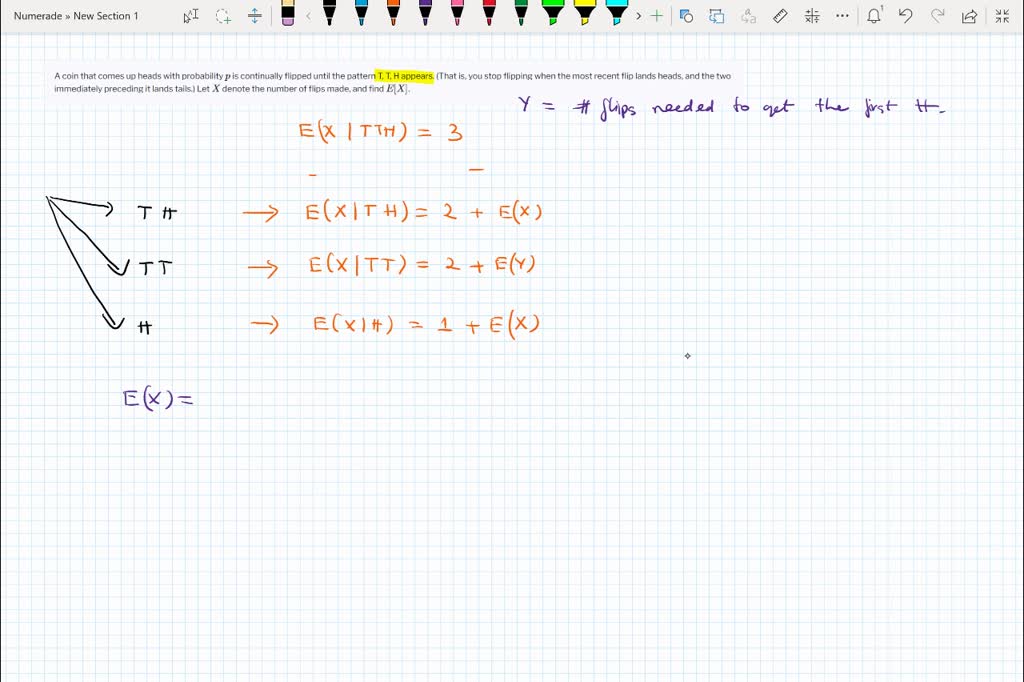 Numerade » New Section 1
A coin that comes up heads with probability p is continually flipped until the pattern T, T, H appears. (That is, you stop flipping when the most recent flip lands heads, and the two
immediately preceding it lands tails.) Let X denote the number of flips made, and find E[X].
Y = # flips needed to get the first H.
E(X | TTH) = 3
TH → E(X | TH) = 2 + E(X)
TT → E(X | TT) = 2 + E(Y)
H → E(X | H) = 1 + E(X)
E(X) =